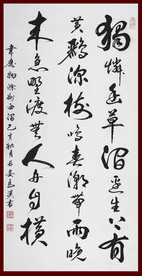 獨憐幽草澗邊生上有
黃鸝深樹鳴春潮帶雨晚
來急野渡無人舟自橫
韋應物滁州西澗 秋月 書